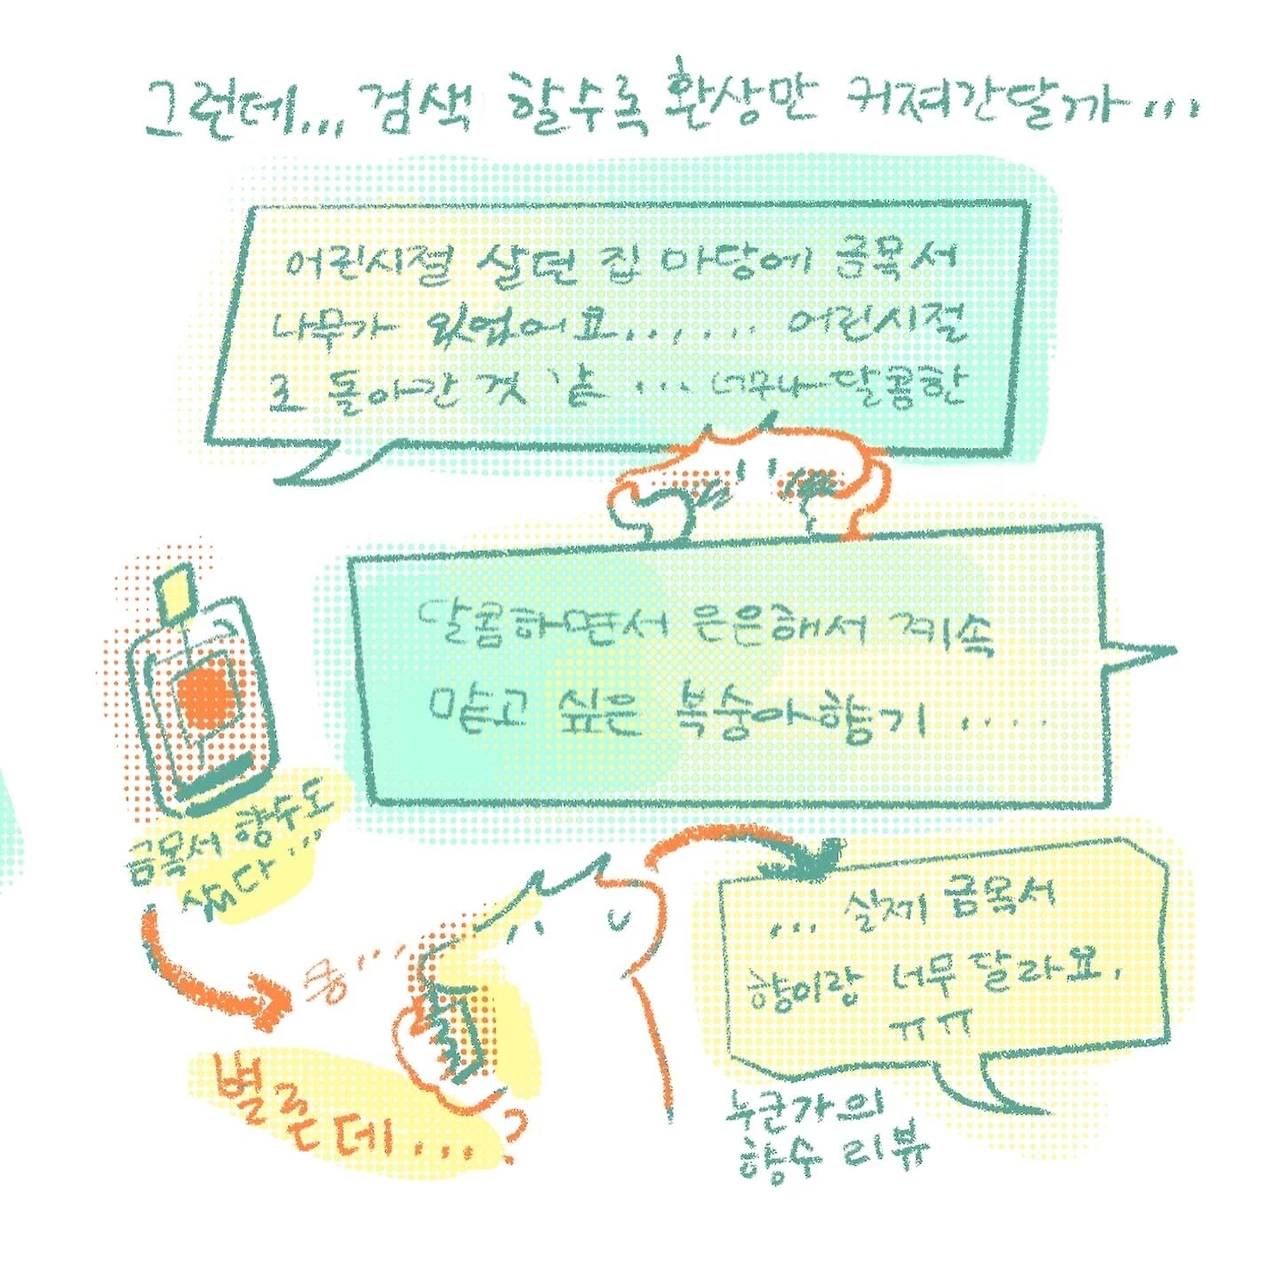 그런데... 검색 할수록 환상만 커져간달까...
어린시절 살던 집 마당에 금목서
나무가 있었어요....... 어린시절
로 돌아간 것 같 ... 너무나 달콤한
달콤하면서 은은해서 계속
맡고 싶은 복숭아향기 .....
금목서 향수도
샀다...
킁...
별론데...?
... 실제 금목서
향이랑 너무 달라요.
ㅠㅠ
누군가의
향수 리뷰